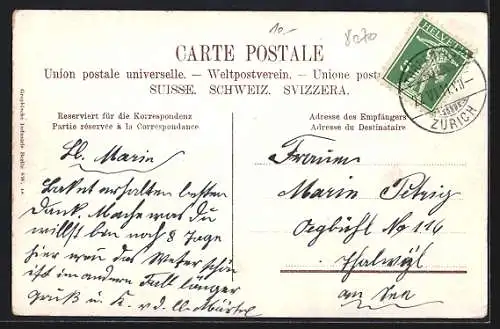 10.-
8070
CARTE POSTALE
Union postale universelle. — Weltpostverein. — Unione postale
SUISSE. SCHWEIZ. SVIZZERA.
HELVETIA
5
ZÜRICH
Graphische Industrie Berlin SW. 48
Reserviert für die Korrespondenz
Partie réservée à la Correspondance
Adresse des Empfängers
Adresse du Destinataire
Lb. Marie
Paket erhalten besten
Dank. Mache was du
willst bin noch 8 Tage
hier wen das Weter schön
ist im andern Fall länger
Gruß u. K. v. d. Ll.
Frauen
Marie
No 116
Thalwyl
am See